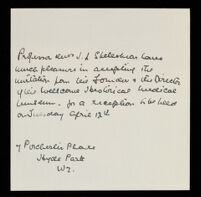 Professor & Mrs J. J. have
much pleasure in accepting the
invitation from the Founder & the Director
of the Wellcome Historical Medical
Museum. for a reception to be held
on Tuesday April 12th

7 Porchester Place
Hyde Park
W2.